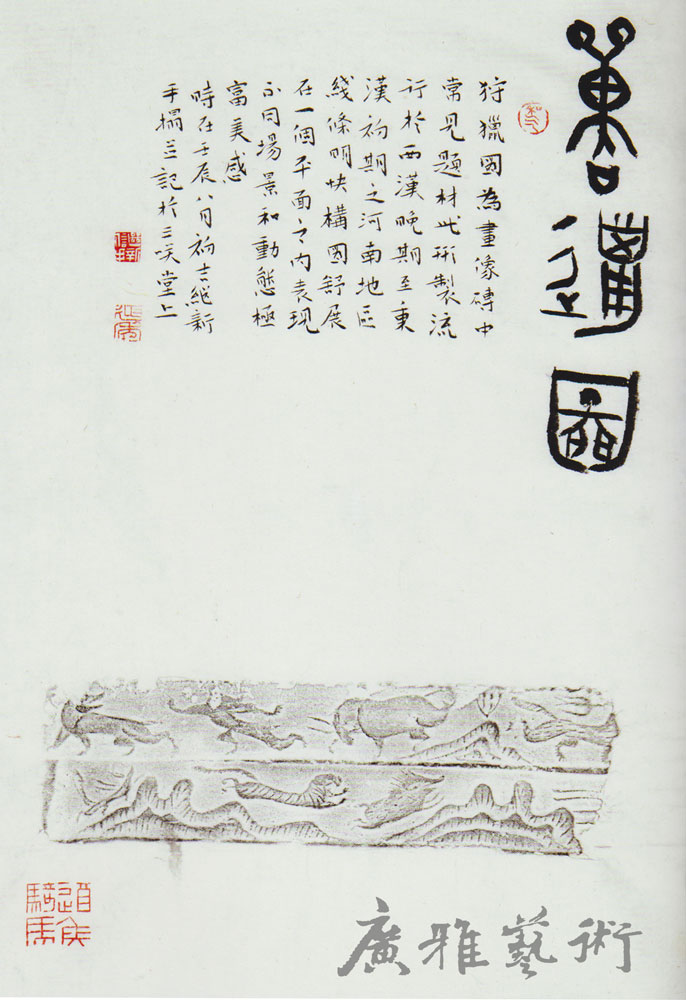 圖
狩獵圖為畫像磚中
常見題材此形製流
行於西漢晚期至東
漢初期之河南地區
綫條明快構圖舒展
在一個平面之内表現
不同場景和動態極
富美感
時在壬辰八月初吉繼新
手搨並記於三堂上
遒侯騎馬
廣雅藝術